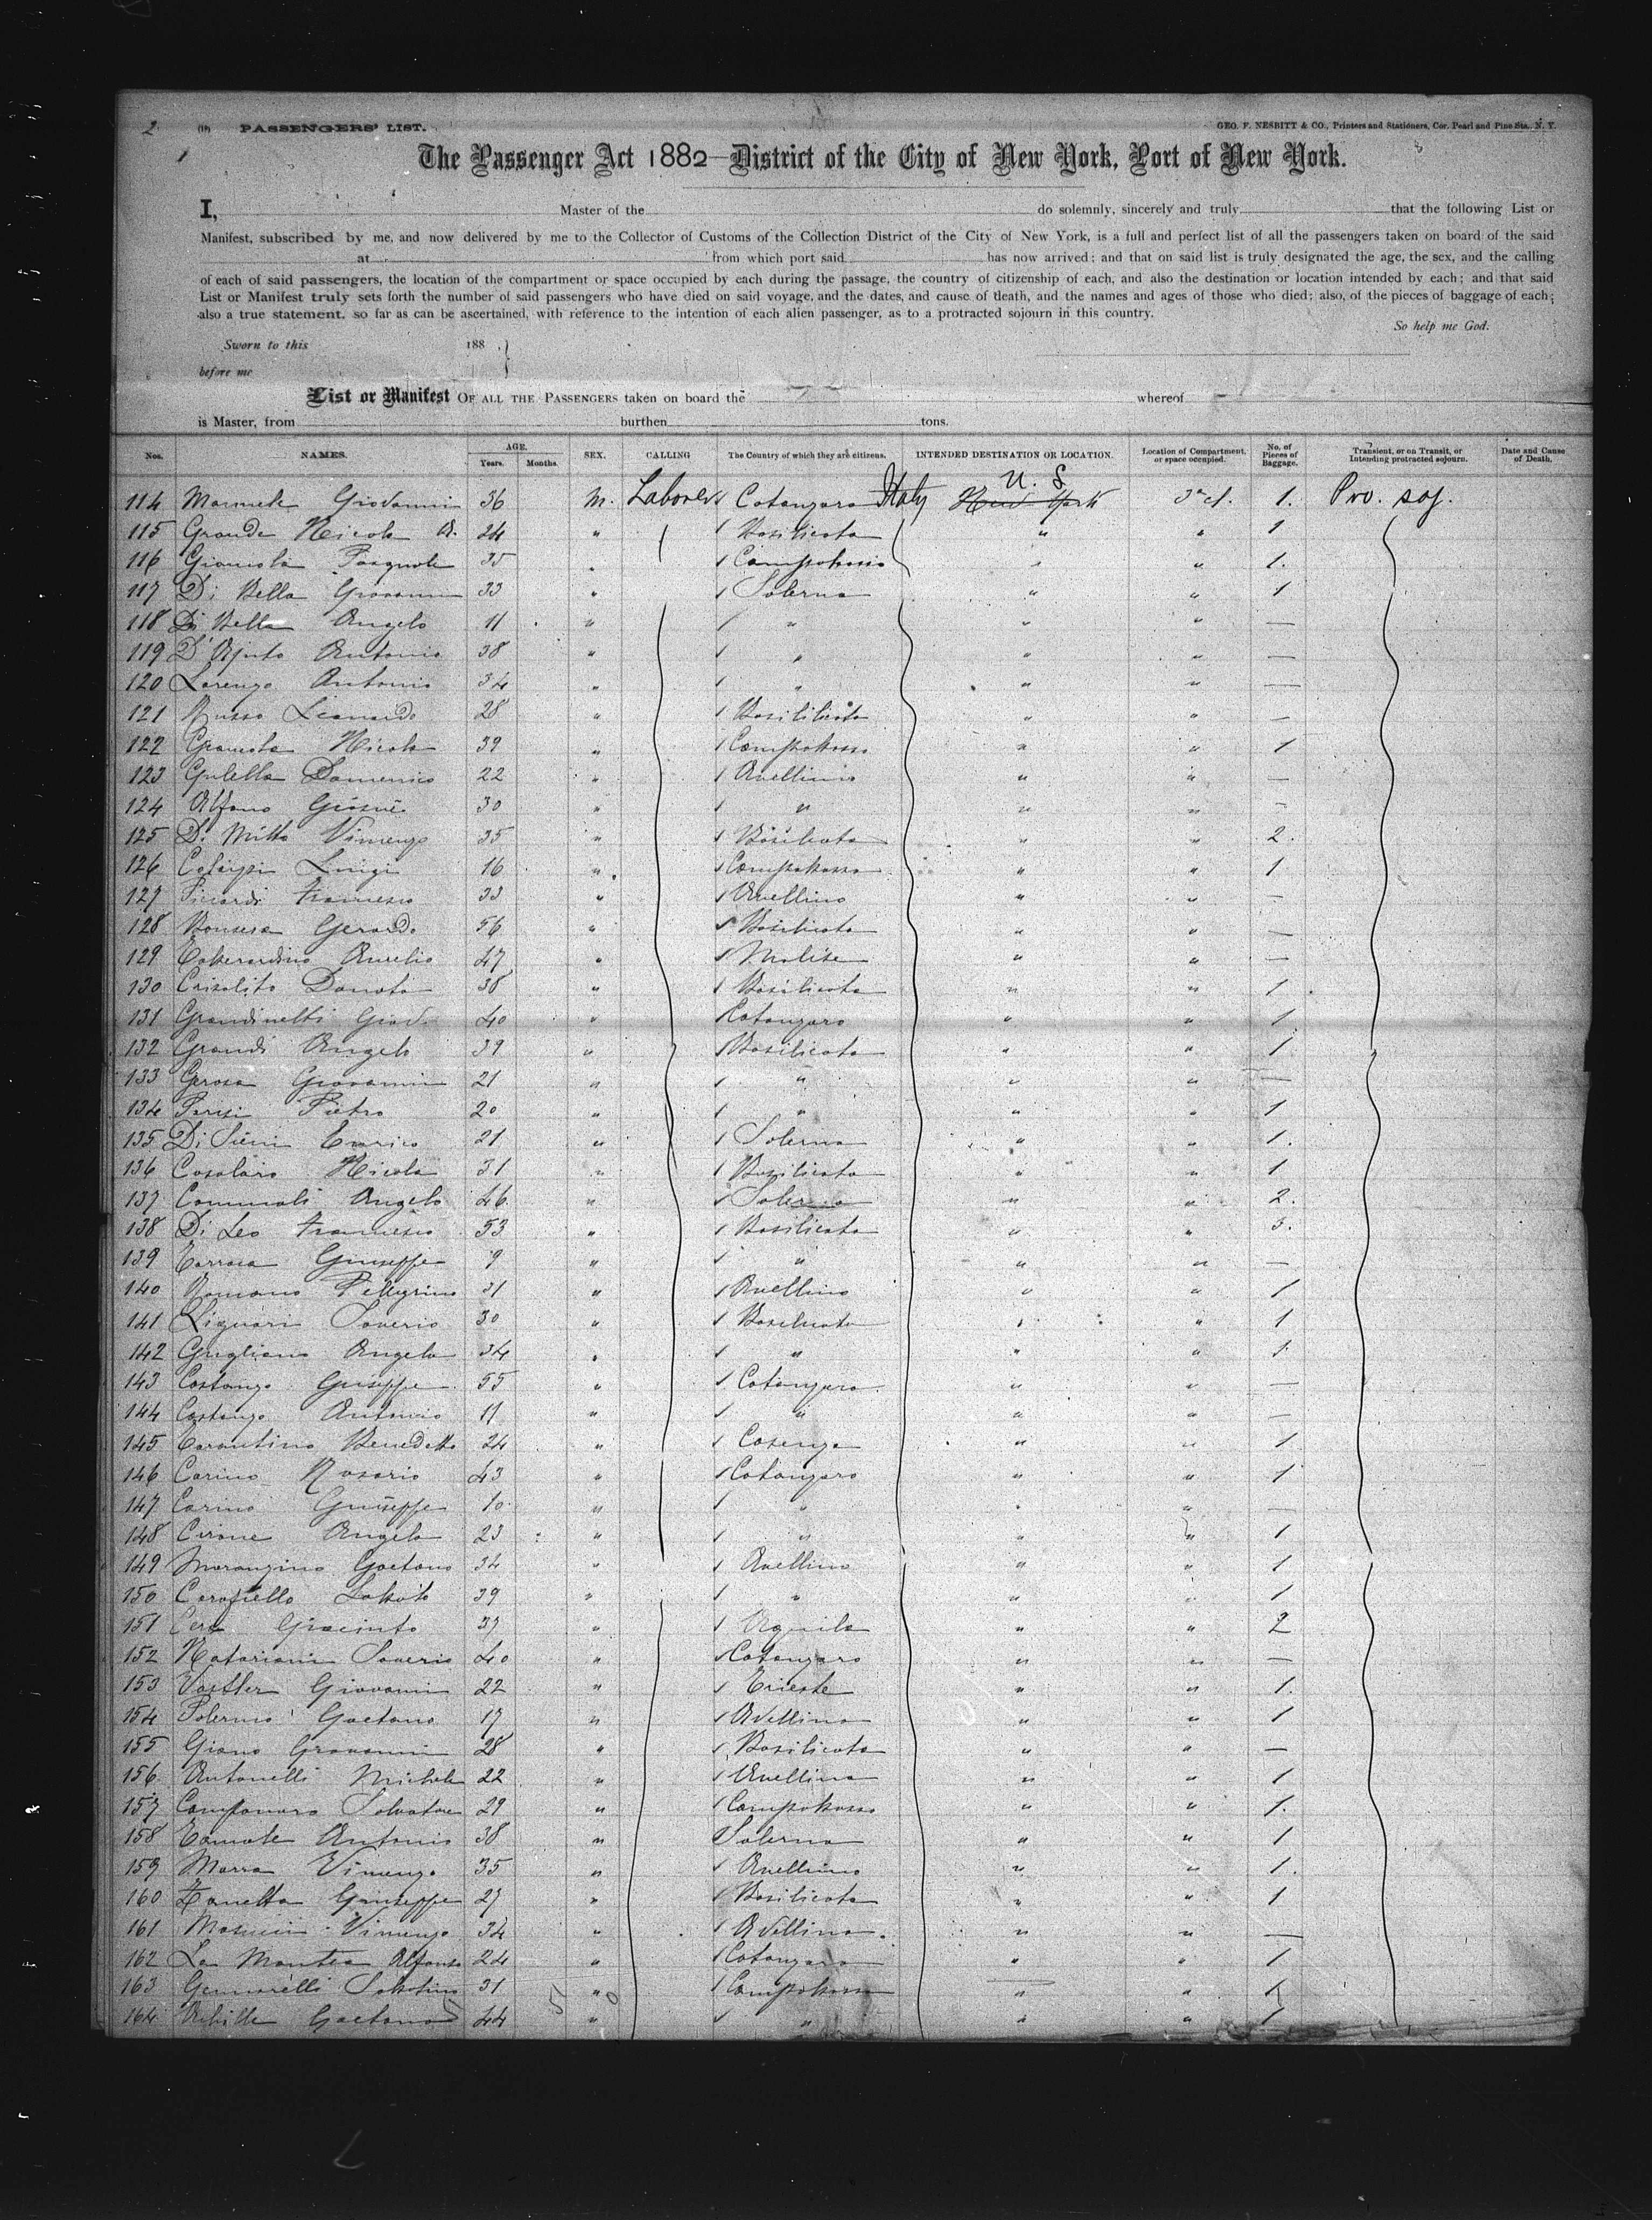 2 (19) PASSENGERS' LIST. GEO. F. NESBITT & CO., Printers and Stationers, Cor. Pearl and Pine Sts., N. Y.
The Passenger Act 1882 District of the City of New York, Port of New York.
I, Master of the do solemnly, sincerely and truly that the following List or
Manifest, subscribed by me, and now delivered by me to the Collector of Customs of the Collection District of the City of New York, is a full and perfect list of all the passengers taken on board of the said
at from which port said has now arrived; and that on said list is truly designated the age, the sex, and the calling
of each of said passengers, the location of the compartment or space occupied by each during the passage, the country of citizenship of each, and also the destination or location intended by each; and that said
List or Manifest truly sets forth the number of said passengers who have died on said voyage, and the dates, and cause of death, and the names and ages of those who died; also, of the pieces of baggage of each;
also a true statement, so far as can be ascertained, with reference to the intention of each alien passenger, as to a protracted sojourn in this country.
So help me God.
Sworn to this 188
before me
List or Manifest OF ALL THE PASSENGERS taken on board the whereof
is Master, from burthen tons.
Nos. NAMES. AGE. Years. Months. SEX. CALLING The Country of which they are citizens. INTENDED DESTINATION OR LOCATION. Location of Compartment, or space occupied. No. of Pieces of Baggage. Transient, or on Transit, or Intending protracted sojourn. Date and Cause of Death.
U. S.
114 Giovanni 36 M. Laborers Catanzaro Italy New York 3rd cl. 1. Pro. soj.
115 Grande Nicola A. 24 " Basilicata " " 1
116 Pasquale 35 " Campobasso " " 1.
117 Di Bella Giovanni 33 " Salerno " " 1
118 Di Bella Angelo 11 " " " " —
119 D'Ajuto Antonio 38 " " " " —
120 Lorenzo Antonio 34 " " " " —
121 Russo Leonardo 28 " Basilicata " " —
122 Nicola 39 " Campobasso " " 1
123 Domenico 22 " Avellino " " —
124 Alfano Giosuè 30 " " " " —
125 Di Vincenzo 35 " Basilicata " " 2.
126 Luigi 16 " Campobasso " " 1
127 Francesco 33 " Avellino " " —
128 Gerardo 56 " Basilicata " " —
129 Aurelio 47 " Molise " " —
130 Crisalito Donato 38 " Basilicata " " 1.
131 Grandinetti Giov. 40 " Catanzaro " " 1
132 Grandi Angelo 39 " Basilicata " " 1
133 Gerosa Giovanni 21 " " " " —
134 Pietro 20 " " " " 1
135 Di Enrico 21 " Salerno " " 1.
136 Casalaro Nicola 31 " Basilicata " " 1
137 Angelo 46 " Salerno " " 2.
138 Di Leo Francesco 53 " Basilicata " " 3.
139 Giuseppe 9 " " " " —
140 Romano Pellegrino 31 " Avellino " " 1
141 Liguori Saverio 30 " Basilicata " " 1
142 Grigliano Angelo 34 " " " " 1
143 Costanzo Giuseppe 55 " Catanzaro " " —
144 Costanzo Antonio 11 " " " " —
145 Tarantino Benedetto 24 " Cosenza " " 1
146 Carino Rosario 43 " Catanzaro " " 1
147 Carino Giuseppe 10 " " " " —
148 Cirone Angelo 23 " " " " 1
149 Maranzino Gaetano 34 " Avellino " " 1
150 Carofiello 39 " " " " 1
151 Giacinto 37 " Aquila " " 2
152 Notariani Saverio 40 " Catanzaro " " —
153 Giovanni 22 " Trieste " " 1.
154 Palermo Gaetano 17 " Avellino " " 1
155 Giano Giovanni 28 " Basilicata " " —
156 Antonelli Michele 22 " Avellino " " 1
157 Campanaro Salvatore 29 " Campobasso " " 1.
158 Antonio 38 " Salerno " " 1
159 Marra Vincenzo 35 " Avellino " " 1.
160 Zanetta Giuseppe 27 " Basilicata " " 1
161 Vincenzo 34 " Avellino " " —
162 La Mantea Alfonso 24 " Catanzaro " " 1
163 Gennarelli Sabatino 31 " Campobasso " " 1
164 Achille Gaetano 44 " " " " 1